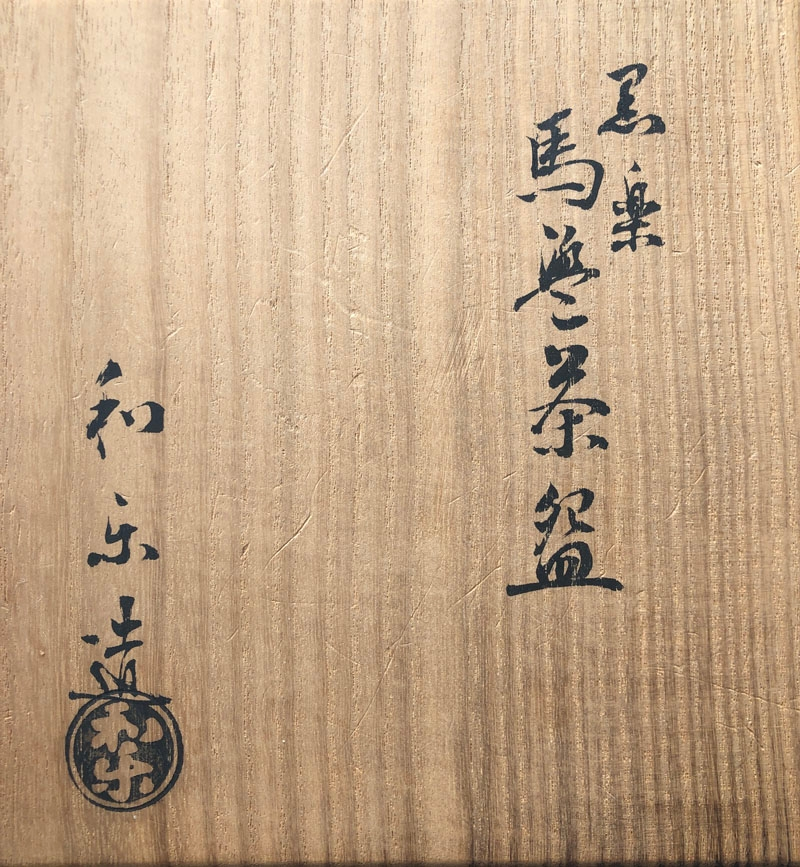 黒楽
馬盥茶盌
和楽造
和楽